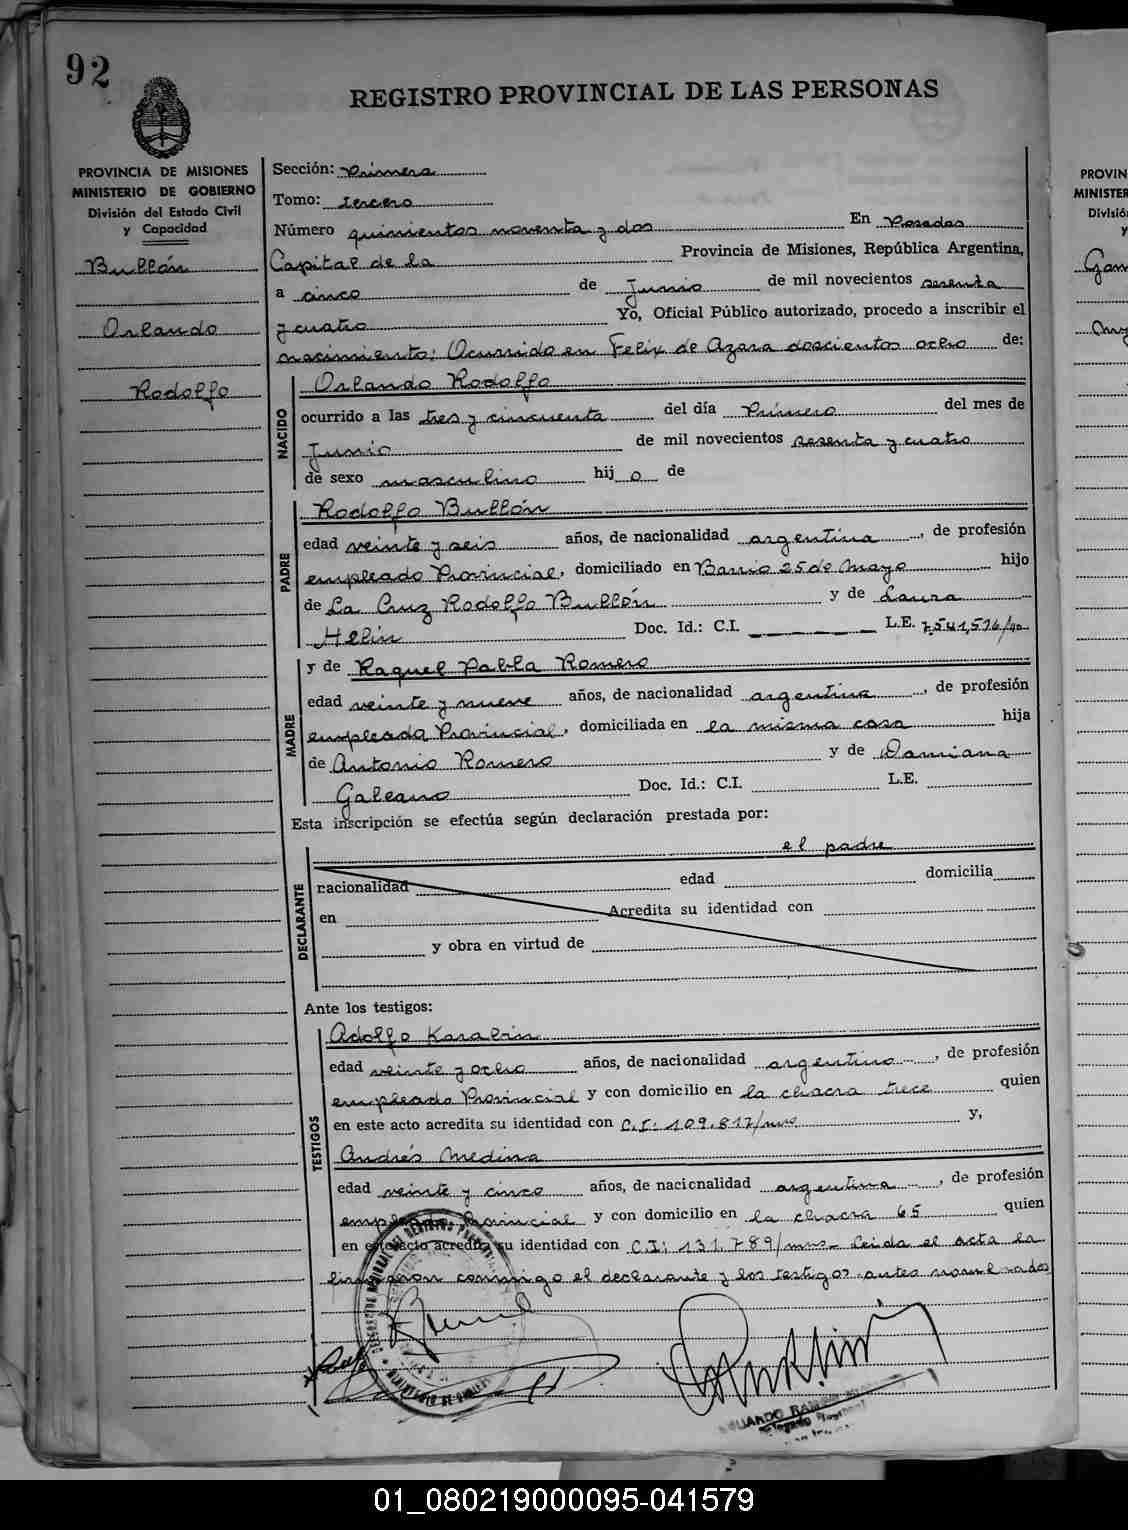 92
REGISTRO PROVINCIAL DE LAS PERSONAS
PROVINCIA DE MISIONES
MINISTERIO DE GOBIERNO
División del Estado Civil
y Capacidad
Bullón
Orlando
Rodolfo
Sección: Primera
Tomo: tercero
Número quinientos noventa y dos En Posadas
Capital de la Provincia de Misiones, República Argentina,
a cinco de Junio de mil novecientos sesenta
y cuatro Yo, Oficial Público autorizado, procedo a inscribir el
nacimiento; Ocurrido en Felix de Azara doscientos ocho de:
NACIDO
Orlando Rodolfo
ocurrido a las tres y cincuenta del día Primero del mes de
Junio de mil novecientos sesenta y cuatro
de sexo masculino hij o de
PADRE
Rodolfo Bullón
edad veinte y seis años, de nacionalidad argentina, de profesión
empleado Provincial, domiciliado en Barrio 25 de Mayo hijo
de La Cruz Rodolfo Bullón y de Laura
Helin Doc. Id.: C.I. L.E. 7,541,576/
MADRE
y de Raquel Pabla Romero
edad veinte y nueve años, de nacionalidad argentina, de profesión
empleada Provincial, domiciliada en la misma casa hija
de Antonio Romero y de Damiana
Galeano Doc. Id.: C.I. L.E.
Esta inscripción se efectúa según declaración prestada por:
el padre
DECLARANTE
nacionalidad edad domicilia
en Acredita su identidad con
y obra en virtud de
Ante los testigos:
TESTIGOS
Adolfo Karabin
edad veinte y ocho años, de nacionalidad argentino, de profesión
empleado Provincial y con domicilio en la chacra trece quien
en este acto acredita su identidad con C.I: 109.817/mns y,
Andrés Medina
edad veinte y cinco años, de nacionalidad argentina, de profesión
empleado Provincial y con domicilio en la chacra 65 quien
en este acto acredita su identidad con C.I: 131.789/mns Leida el acta la
firmaron conmigo el declarante y los testigos antes nombrados
01_080219000095-041579